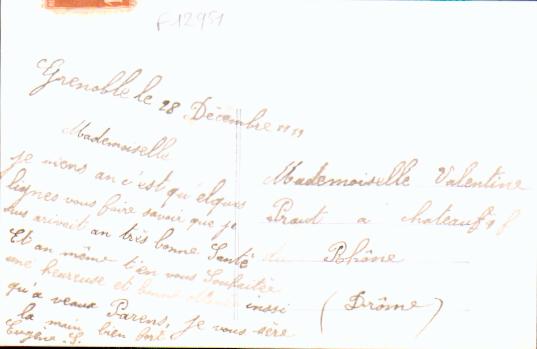 F 12951
Grenoble le 28 Décembre 1911
Mademoiselle
je viens an c'est qu'élques
lignes vous faire savoir que je
suis arivait an très bonne Santé
Et an même t'en vous Souhaitée
une heureuse et bonne inssi
qu'a veaux Parens, je vous sère
la main bien fort
Eugène S.
Mademoiselle Valentine
Praut a chateauf
du Rhône
(Drôme)